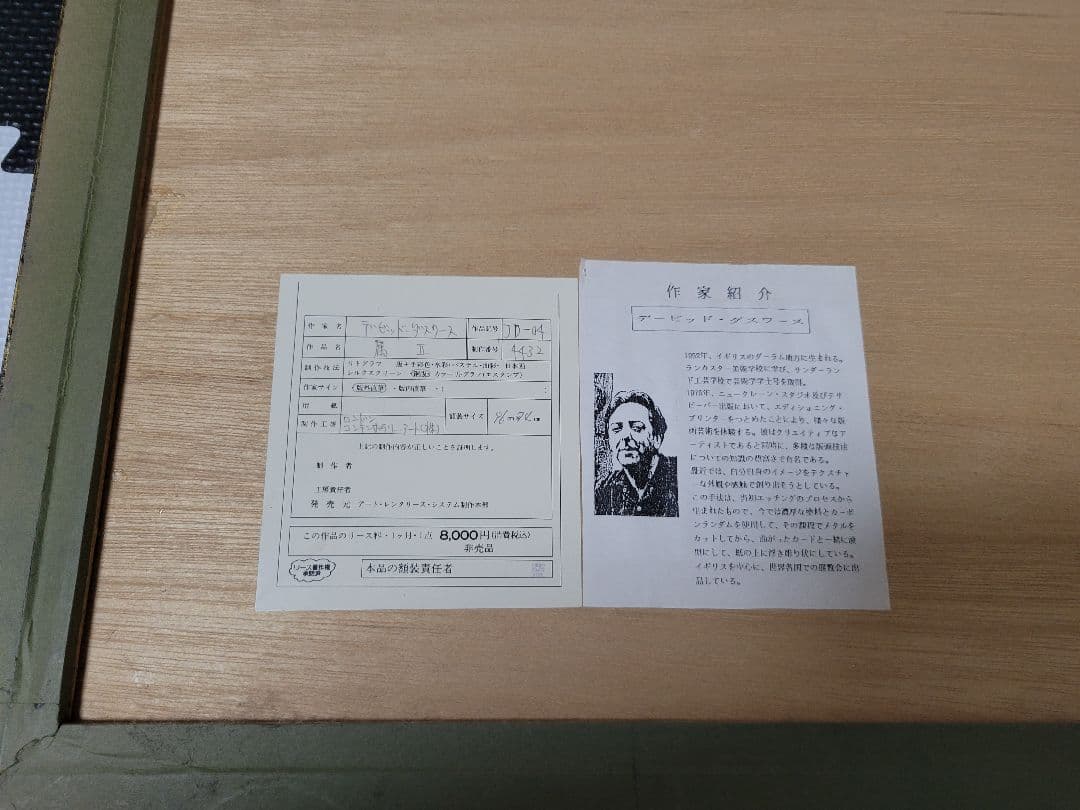 作家名 デービッド・グスワース 作品記号 JD-04
作品名 篤 Ⅱ 制作番号 4432
制作技法 リトグラフ 版+手彩色・水彩・パステル・油彩・日本画
シルクスクリーン (銅版) カラーリ・グラハ(エスタンプ)
作家サイン (版外直筆)・版内直筆・(
用紙
製作工房 ロンドン コンテンポラリーアート(株) 額装サイズ
上記の制作内容が正しいことを証明します。
制作者
工房責任者
発売元 アート・レンタリース・システム制作本部
この作品のリース料・1ヶ月・1点 8,000円(消費税込)
非売品
リース著作権
承認済
本品の額装責任者
作家紹介
デービッド・グスワース
1952年、イギリスのダーラム地方に生まれる。
ランカスター美術学校に学び、サンダーラン
ド工芸学校で芸術学学士号を取得。
1975年、ニュークレーン・スタジオ及びテサ
ビーバー出版において、エディショニング・
プリンターをつとめたことにより、様々な版
画芸術を体験する。彼はクリエイティブなア
ーティストであると同時に、多様な版画技法
についての知識の豊富さで有名である。
最近では、自分自身のイメージをテクスチャ
ーな外観や感触で創り出そうとしている。
この手法は、当初エッチングのプロセスから
生まれたもので、今では濃厚な塗料とカーボ
ランダムを使用して、その段階でメタルを
カットしてから、曲がったカードと一緒に成
型にして、紙の上に浮き彫り状にしている。
イギリスを中心に、世界各国での展覧会に出
品している。